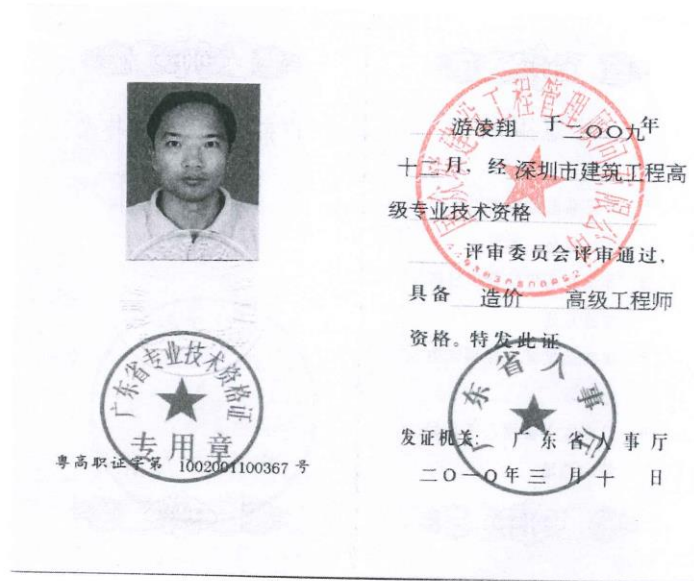 广东省专业技术资格证
专用章
粤高职证字第 1002001100367 号
游凌翔 于二〇〇九年
十二月，经 深圳市建筑工程高
级专业技术资格
评审委员会评审通过，
具备 造价 高级工程师
资格。特发此证
广东省人事厅
发证机关： 广东省人事厅
二〇一〇年三月十日
建设工程管理顾问有限公司